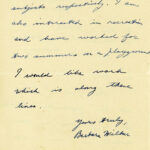 subjects respectively. I am
also interested in recreation
and have worked for
two summers on a playground.
I would like work
which is along these
lines.
Yours truly,
Barbara Wilker